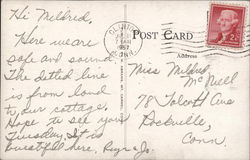 Hi Mildred,
Here we are
safe and sound.
The dotted line
is from road
to our cottage.
Hope to see you
Tuesday. It is
beautiful here.
1957
POST CARD
Address
Miss Mildred
McNeill
78 Talcott Ave
Rockville,
Conn.
2¢